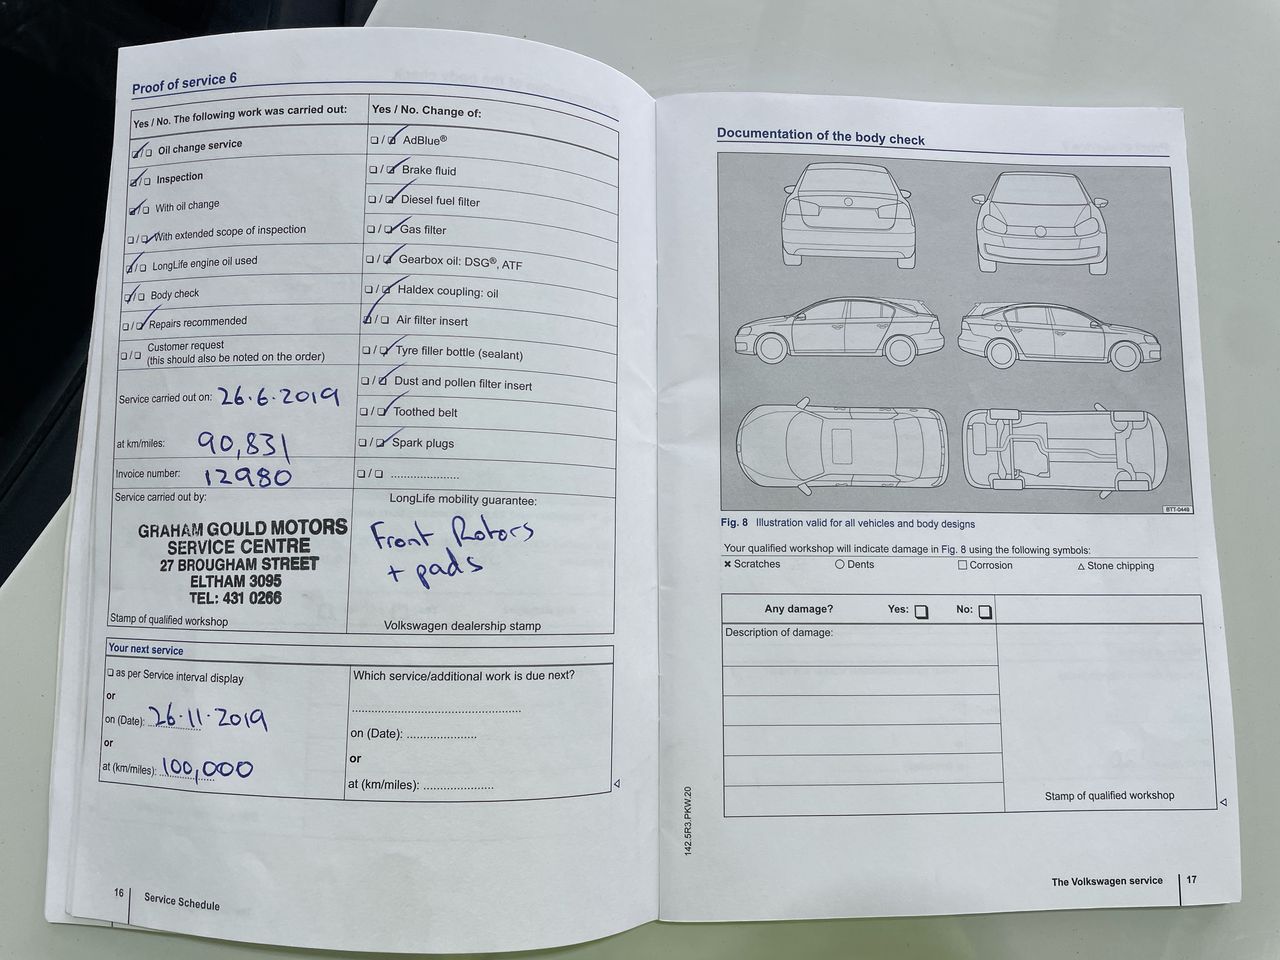 Proof of service 6
Yes / No. The following work was carried out:
☑/☐ Oil change service
☑/☐ Inspection
☑/☐ With oil change
☐/☑ With extended scope of inspection
☑/☐ LongLife engine oil used
☑/☐ Body check
☐/☑ Repairs recommended
☐/☐ Customer request
(this should also be noted on the order)
Service carried out on: 26.6.2019
at km/miles: 90,831
Invoice number: 12980
Service carried out by:
GRAHAM GOULD MOTORS
SERVICE CENTRE
27 BROUGHAM STREET
ELTHAM 3095
TEL: 431 0266
Stamp of qualified workshop
Yes / No. Change of:
☐/☑ AdBlue®
☐/☑ Brake fluid
☐/☑ Diesel fuel filter
☐/☑ Gas filter
☐/☑ Gearbox oil: DSG®, ATF
☐/☑ Haldex coupling: oil
☑/☐ Air filter insert
☐/☑ Tyre filler bottle (sealant)
☐/☑ Dust and pollen filter insert
☐/☑ Toothed belt
☐/☑ Spark plugs
☐/☐ ....................
LongLife mobility guarantee:
Front Rotors
+ pads
Volkswagen dealership stamp
Your next service
☐ as per Service interval display
or
on (Date): 26.11.2019
or
at (km/miles): 100,000
Which service/additional work is due next?
..................................................
on (Date): ....................
or
at (km/miles): ....................
16 Service Schedule
Documentation of the body check
BTT-0449
Fig. 8 Illustration valid for all vehicles and body designs
Your qualified workshop will indicate damage in Fig. 8 using the following symbols:
× Scratches ○ Dents □ Corrosion △ Stone chipping
Any damage? Yes: ☐ No: ☐
Description of damage:
Stamp of qualified workshop
142.5R3.PKW.20
The Volkswagen service 17